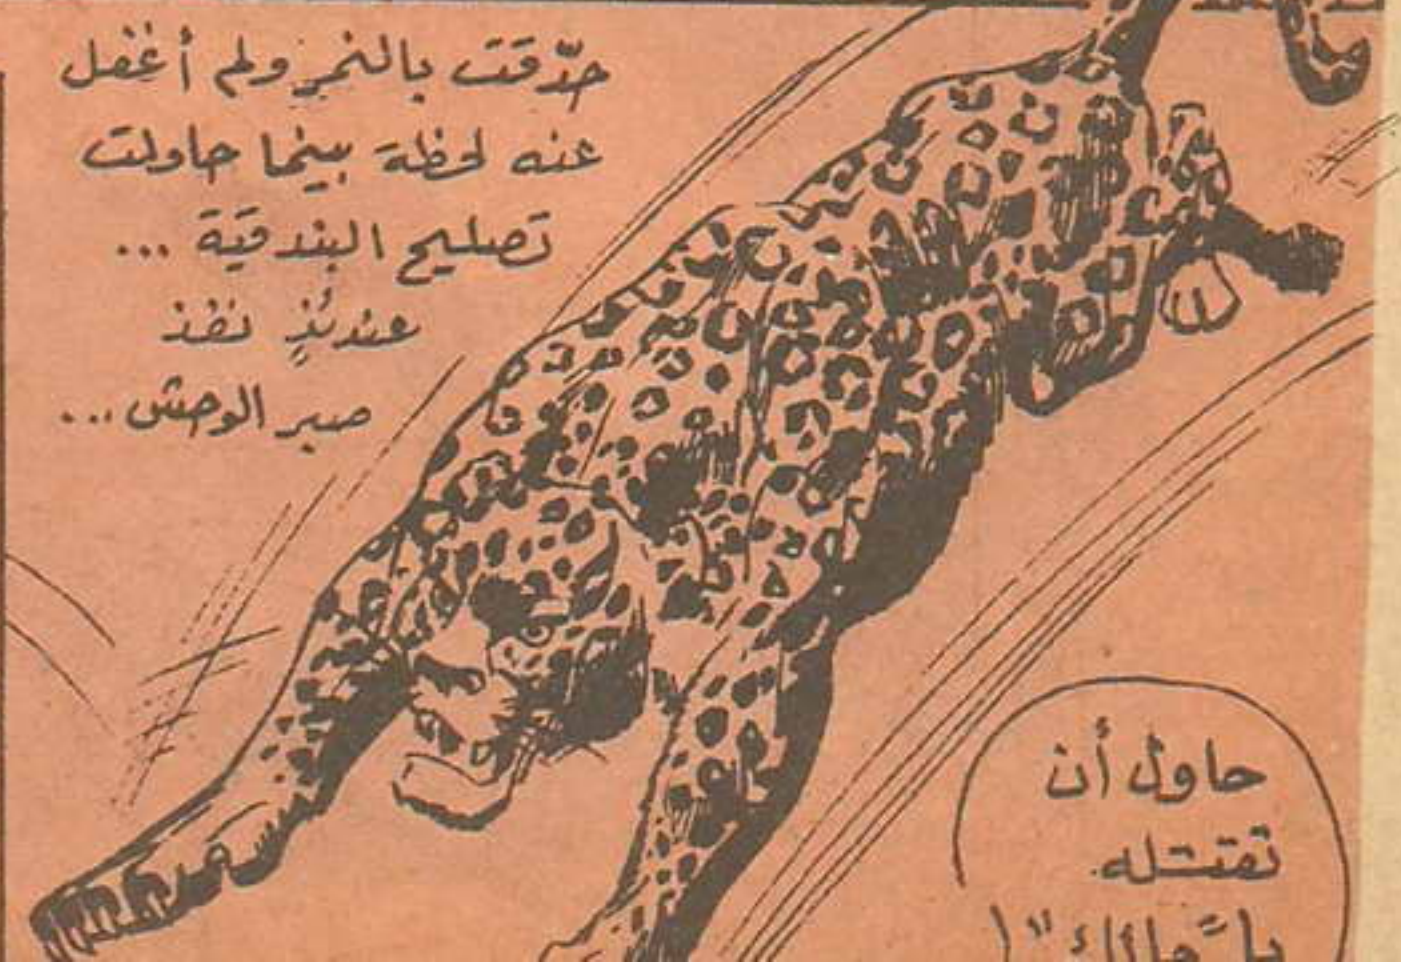 حدّقت بالنمر ولم أغفل
عنه لحظة بينما حاولت
تصليح البندقية ...
عندئذٍ نفذ
صبر الوحش ...
حاول أن
تقتله
يا "مالك"!